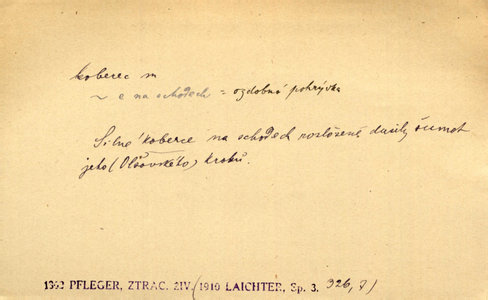 koberec m
~ e na schodech = ozdobná pokrývka
Silné koberce na schodech rozložené dusily šumot
jeho (Olšovského) kroků.
1392 PFLEGER, ZTRAC. ŽIV. (1910 LAICHTER, Sp. 3. 326, 7)